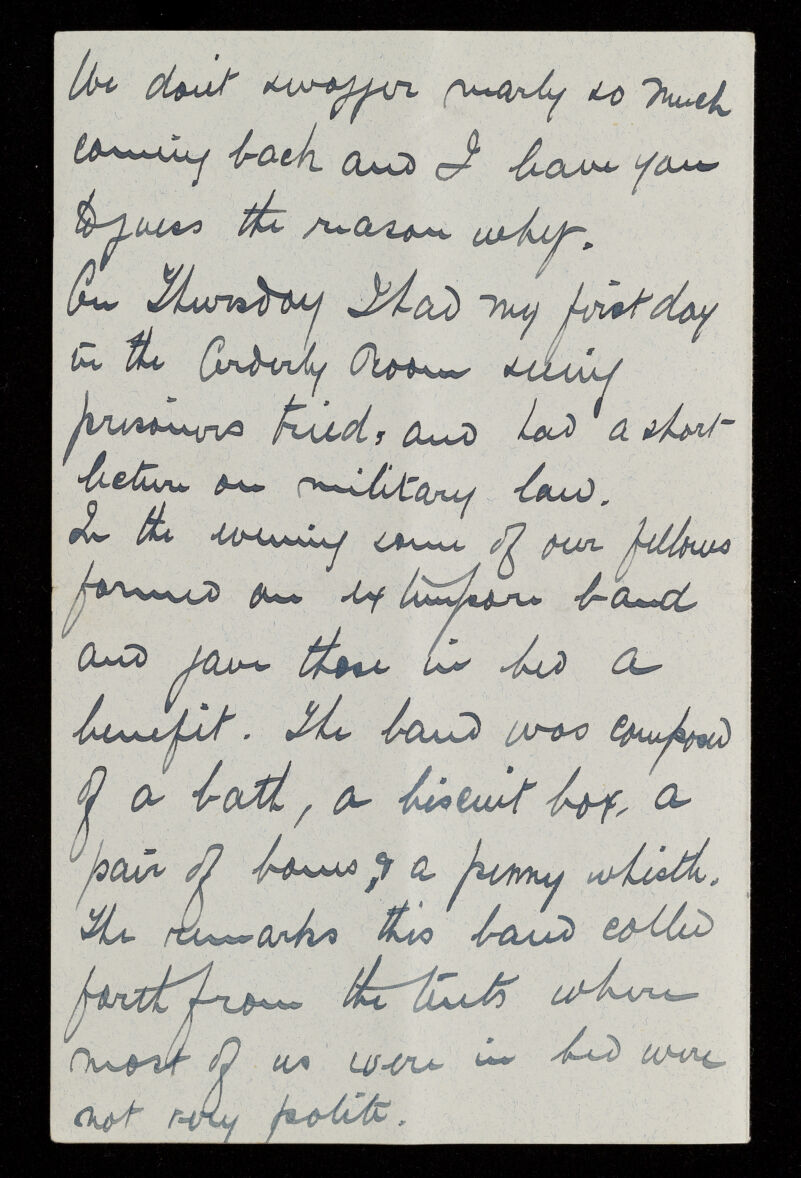 We don't swagger nearly so much
coming back and I leave you
to guess the reason why.
On Thursday I had my first day
in the Orderly Room seeing
prisoners tried, and had a short
lecture on military law.
In the evening some of our fellows
formed an extempore band
and gave those in bed a
benefit. The band was composed
of a bath, a biscuit box, a
pair of bones, & a penny whistle.
The remarks this band called
forth from the tents where
most of us were in bed were
not very polite.